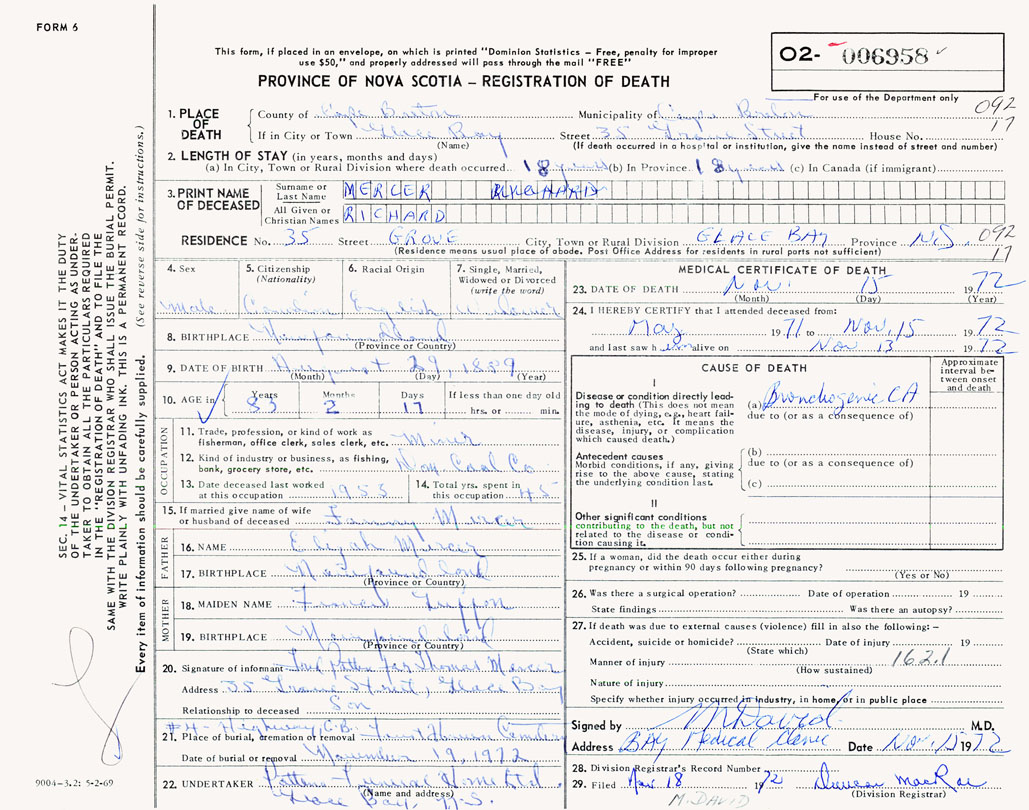 FORM 6
This form, if placed in an envelope, on which is printed "Dominion Statistics – Free, penalty for improper
use $50," and properly addressed will pass through the mail "FREE"
PROVINCE OF NOVA SCOTIA – REGISTRATION OF DEATH
O2- 006958
For use of the Department only
092
17
1. PLACE OF DEATH
County of Cape Breton Municipality of Cape Breton
If in City or Town Glace Bay Street 35 Street House No.
(Name) (If death occurred in a hospital or institution, give the name instead of street and number)
2. LENGTH OF STAY (in years, months and days)
(a) In City, Town or Rural Division where death occurred 18 years (b) In Province 18 years (c) In Canada (if immigrant)
3. PRINT NAME OF DECEASED
Surname or Last Name MERCER
All Given or Christian Names RICHARD
RESIDENCE No. 35 Street GROVE City, Town or Rural Division GLACE BAY Province N.S. 092
(Residence means usual place of abode. Post Office Address for residents in rural ports not sufficient) 17
4. Sex Male
5. Citizenship (Nationality) Canadian
6. Racial Origin English
7. Single, Married, Widowed or Divorced (write the word)
8. BIRTHPLACE Newfoundland
(Province or Country)
9. DATE OF BIRTH August 29, 1889
(Month) (Day) (Year)
10. AGE in Years 83 Months 2 Days 17 If less than one day old hrs. or min.
OCCUPATION
11. Trade, profession, or kind of work as fisherman, office clerk, sales clerk, etc. Miner
12. Kind of industry or business, as fishing, bank, grocery store, etc. Coal Co
13. Date deceased last worked at this occupation 1953
14. Total yrs. spent in this occupation 45
15. If married give name of wife or husband of deceased Fanny Mercer
FATHER
16. NAME Elijah Mercer
17. BIRTHPLACE Newfoundland
(Province or Country)
MOTHER
18. MAIDEN NAME
19. BIRTHPLACE Newfoundland
(Province or Country)
20. Signature of informant for Thomas Mercer
Address 35 Street, Glace Bay
Relationship to deceased Son
#4 - Highway C.B. Cemetery
21. Place of burial, cremation or removal
Date of burial or removal November 19, 1972
22. UNDERTAKER Funeral Home Ltd.
(Name and address)
Glace Bay, N.S.
MEDICAL CERTIFICATE OF DEATH
23. DATE OF DEATH Nov. 15 1972
(Month) (Day) (Year)
24. I HEREBY CERTIFY that I attended deceased from:
May 1971 to Nov. 15 1972
and last saw him alive on Nov 13 1972
CAUSE OF DEATH
Approximate interval between onset and death
I
Disease or condition directly leading to death (This does not mean the mode of dying, e.g., heart failure, asthenia, etc. It means the disease, injury, or complication which caused death.)
(a) Bronchogenic CA
due to (or as a consequence of)
Antecedent causes
Morbid conditions, if any, giving rise to the above cause, stating the underlying condition last.
(b)
due to (or as a consequence of)
(c)
II
Other significant conditions contributing to the death, but not related to the disease or condition causing it.
25. If a woman, did the death occur either during pregnancy or within 90 days following pregnancy?
(Yes or No)
26. Was there a surgical operation? Date of operation 19
State findings Was there an autopsy?
27. If death was due to external causes (violence) fill in also the following: –
Accident, suicide or homicide? Date of injury 19
(State which)
Manner of injury 162.1
(How sustained)
Nature of injury
Specify whether injury occurred in industry, in home, or in public place
Signed by M David M.D.
Address BAY Medical Clinic Date Nov. 15 1972
28. Division Registrar's Record Number
29. Filed Nov 18 1972 Duncan MacRae
(Division Registrar)
M. DAVID
SEC. 14 – VITAL STATISTICS ACT MAKES IT THE DUTY
OF THE UNDERTAKER OR PERSON ACTING AS UNDERTAKER TO OBTAIN ALL THE PARTICULARS REQUIRED
IN THE "REGISTRATION OF DEATH" AND TO FILE THE
SAME WITH THE DIVISION REGISTRAR WHO SHALL ISSUE THE BURIAL PERMIT.
WRITE PLAINLY WITH UNFADING INK. THIS IS A PERMANENT RECORD.
Every item of information should be carefully supplied. (See reverse side for instructions.)
9004-3.2: 5-2-69